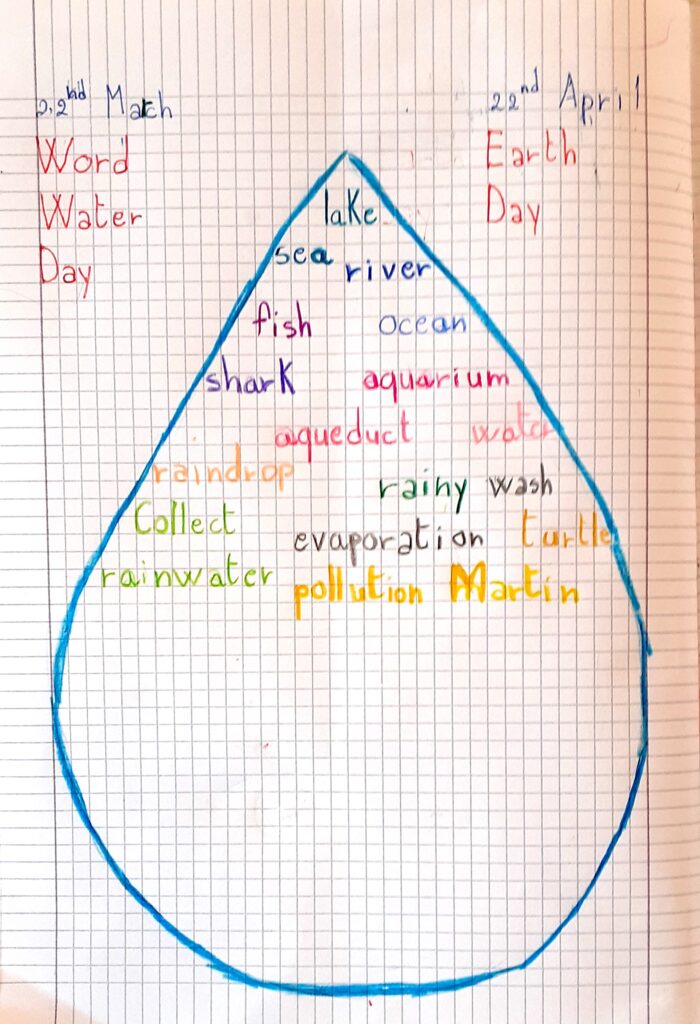 22nd March
Word
Water
Day
22nd April
Earth
Day
lake
sea river
fish ocean
shark aquarium
aqueduct water
raindrop
rainy wash
Collect
rainwater
evaporation turtle
pollution Martin